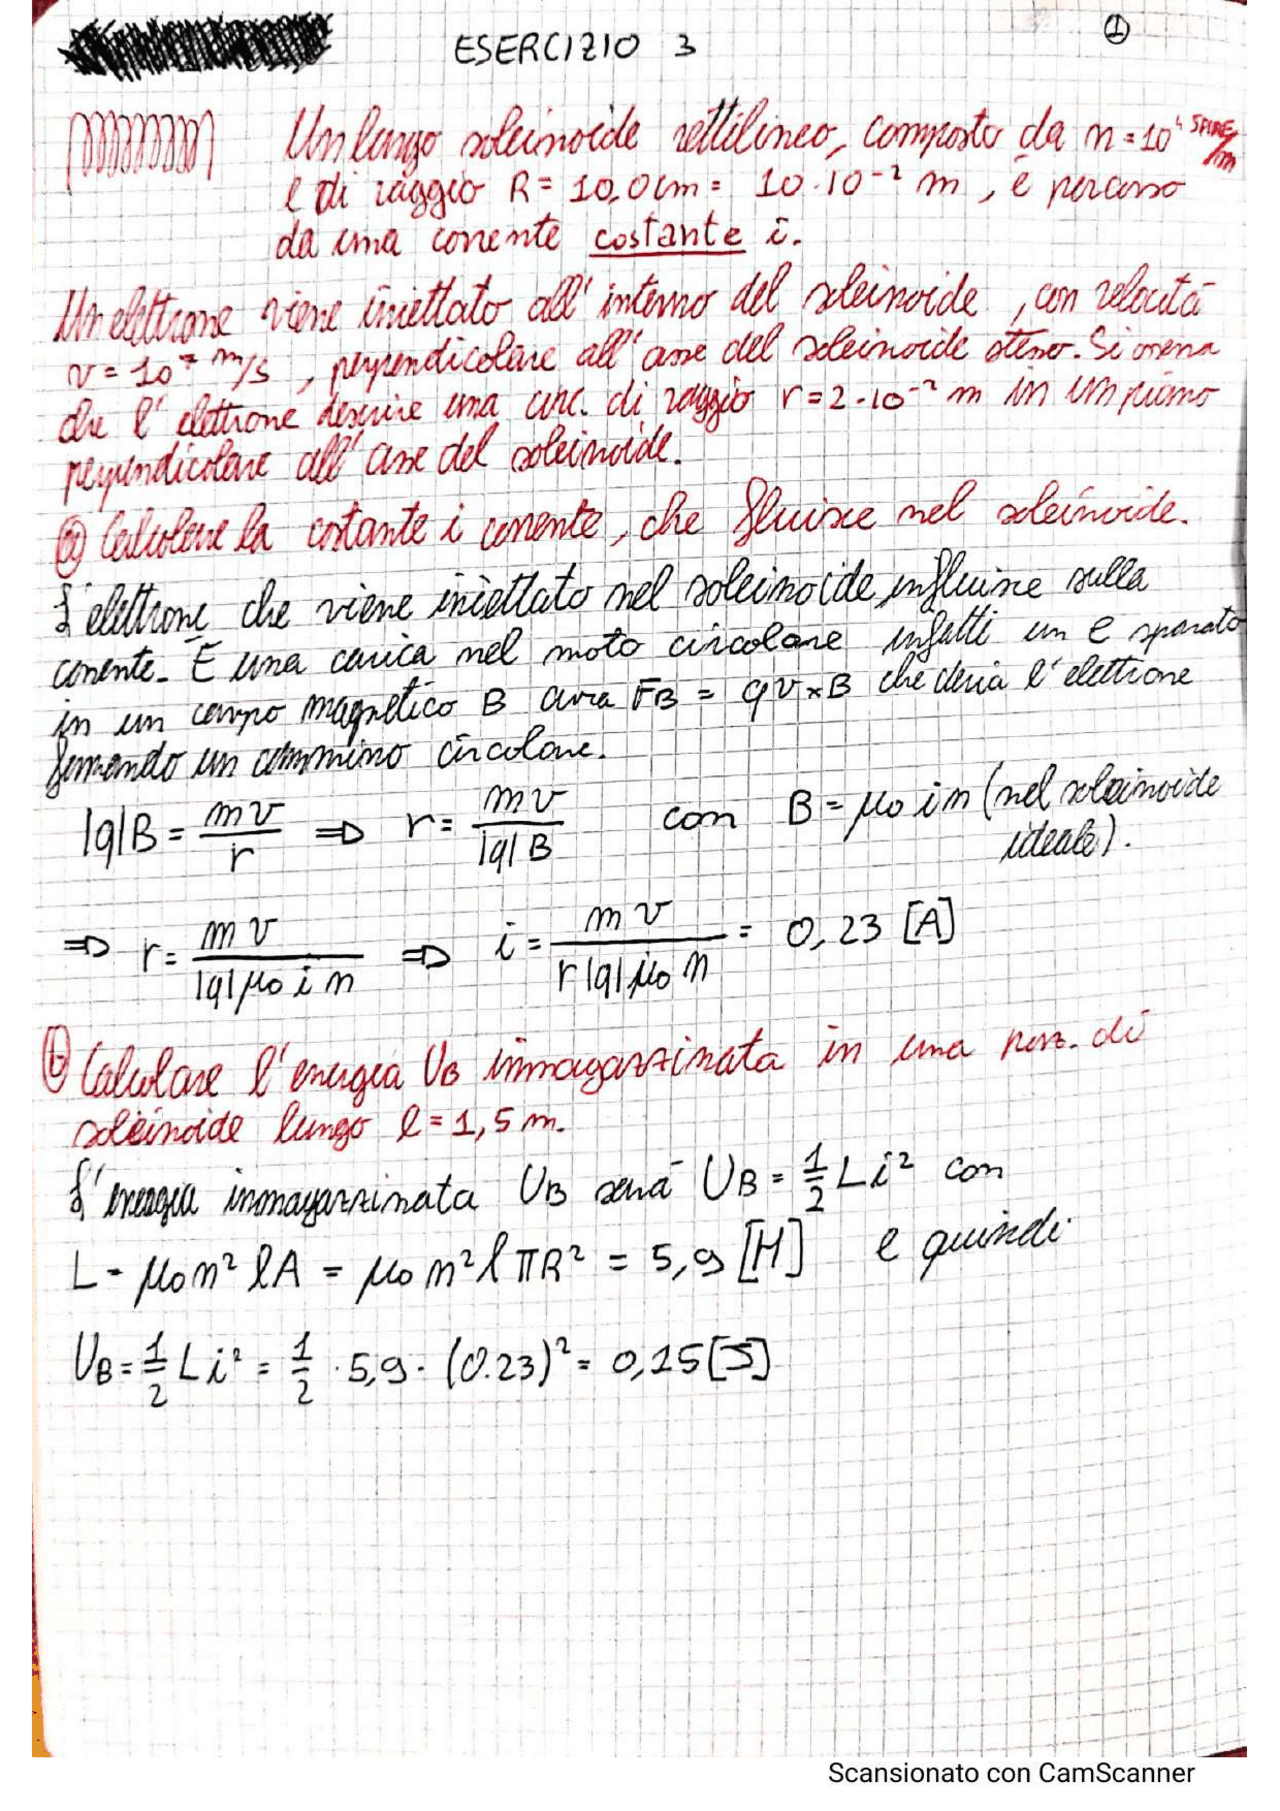 ESERCIZIO 3
1
Un lungo soleinoide rettilineo, composto da n = 10⁴ SPIRE/m
e di raggio R = 10,0 cm = 10·10⁻² m, è percorso
da una corrente costante i.
Un elettrone viene iniettato all'interno del soleinoide, con velocità
v = 10⁷ m/s, perpendicolare all'asse del soleinoide stesso. Si osserva
che l'elettrone descrive una circ. di raggio r = 2·10⁻² m in un piano
perpendicolare all'asse del soleinoide.
a) Calcolare la costante i corrente, che fluisce nel soleinoide.
L'elettrone che viene iniettato nel soleinoide influisce sulla
corrente. È una carica nel moto circolare infatti un e sparato
in un campo magnetico B avrà FB = qv×B che devia l'elettrone
formando un cammino circolare.
|q|B = mv/r ⇒ r = mv/|q|B con B = μ₀ i n (nel soleinoide
ideale).
⇒ r = mv/|q|μ₀ i n ⇒ i = mv/r|q|μ₀ n = 0,23 [A]
b) Calcolare l'energia UB immagazzinata in una porz. di
soleinoide lungo l = 1,5 m.
L'energia immagazzinata UB sarà UB = 1/2 Li² con
L = μ₀n² lA = μ₀ n² l πR² = 5,9 [H] e quindi
UB = 1/2 Li² = 1/2 · 5,9 · (0.23)² = 0,15 [J]
Scansionato con CamScanner